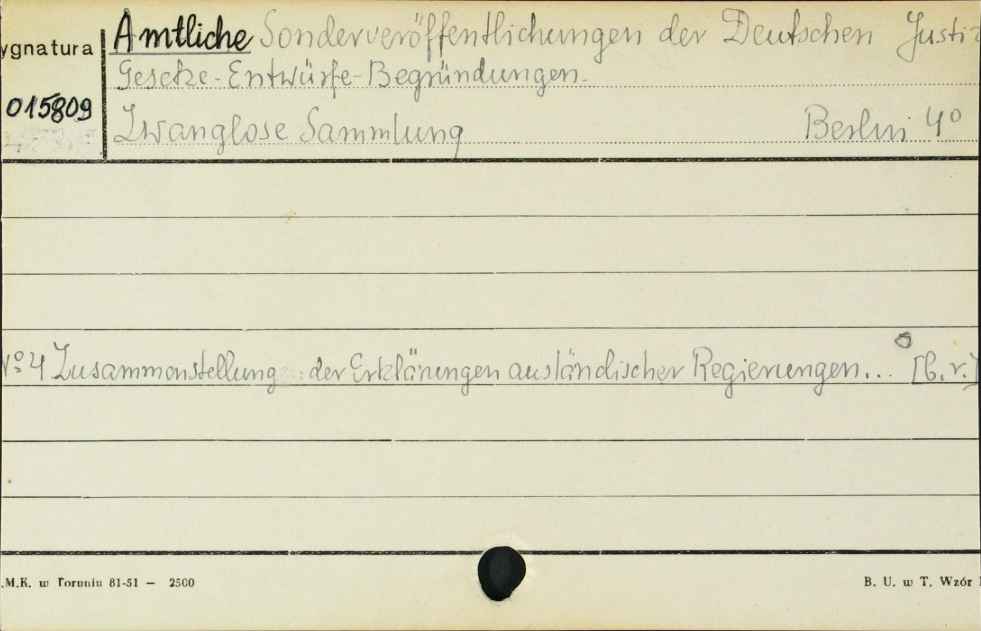 ygnatura
Amtliche Sonderveröffentlichungen der Deutschen Justiz
Gesetze-Entwürfe-Begründungen.
015809
Zwanglose Sammlung Berlin 4º
Nº 4 Zusammenstellung der Erklärungen ausländischer Regierungen... [b.r.]
.M.K. w Toruniu 81-51 — 2500
B. U. w T. Wzór